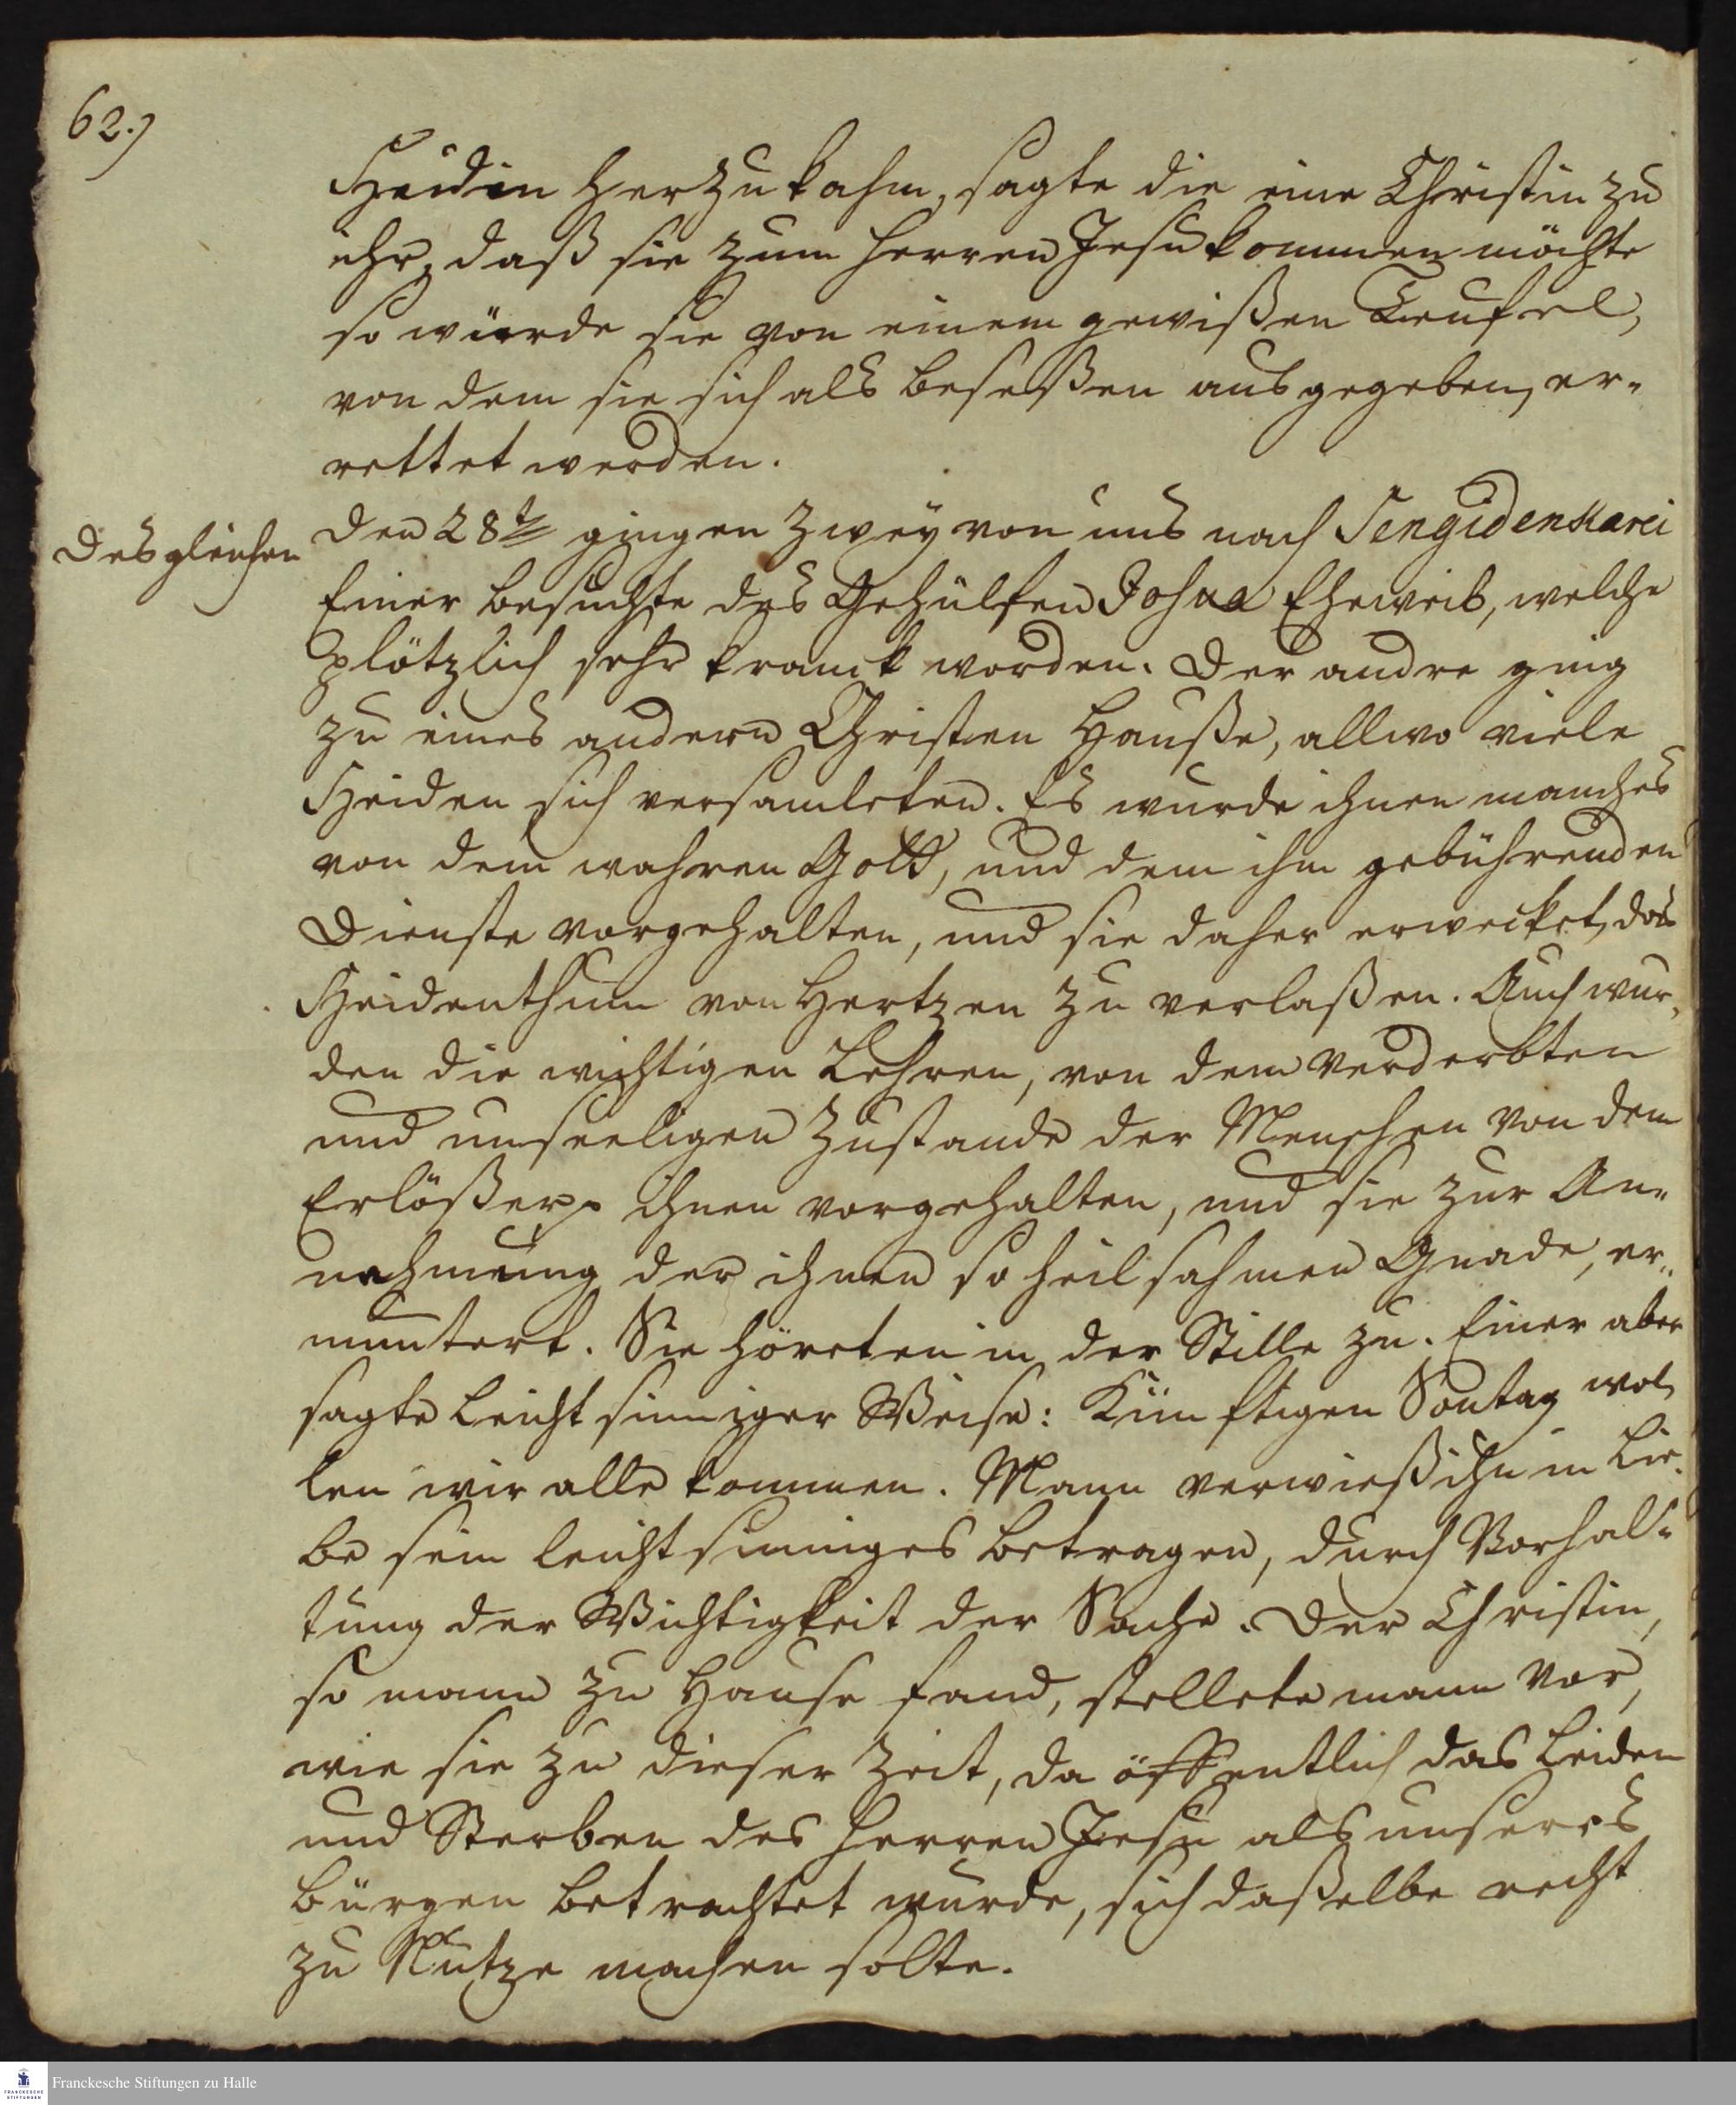 62.)
Heidin herzukahm, sagte die eine Christin zu
ihr, daß sie zum Herren Jesu kommen möchte
so würde sie von einem gewißen Teufel,
von dem sie sich als beseßen ausgegeben, er-
rettet werden.
Desgleichen
Den 28te gingen zwey von uns nach Sengidenkarei
Einer besuchte des Gehülfen Josua Eheweib, welche
plötzlich sehr kranck worden. Der andre ging
zu eines andern Christen Hauße, allwo viele
Heiden sich versamleten. Es wurde ihnen manches
von dem wahren Gott, und dem ihm gebührenden
Dienste vorgehalten, und sie daher erwecket, das
Heidenthum von Hertzen zu verlaßen. Auch wur-
den die wichtigen Lehren, von dem verderbten
und unseeligen Zustande der Menschen von dem
Erlößer ihnen vorgehalten, und sie zur An-
nehmung der ihnen so heilsahmen Gnade, er-
muntert. Sie höreten in der Stille zu. Einer aber
sagte leichtsinniger Weise: Künftigen Sontag wol-
len wir alle kommen. Mann verwieß ihn in Lie-
be sein leichtsinniges betragen, durch Vorhal-
tung der Wichtigkeit der Sache. Der Christin,
so mann zu Hause fand, stellete mann vor,
wie sie zu dieser Zeit, da öffentlich das Leiden
und Sterben des Herren Jesu als unseres
Bürgen betrachtet wurde, sich daßelbe recht
zu Nutze machen solte.
FRANCKESCHE
STIFTUNGEN
Franckesche Stiftungen zu Halle